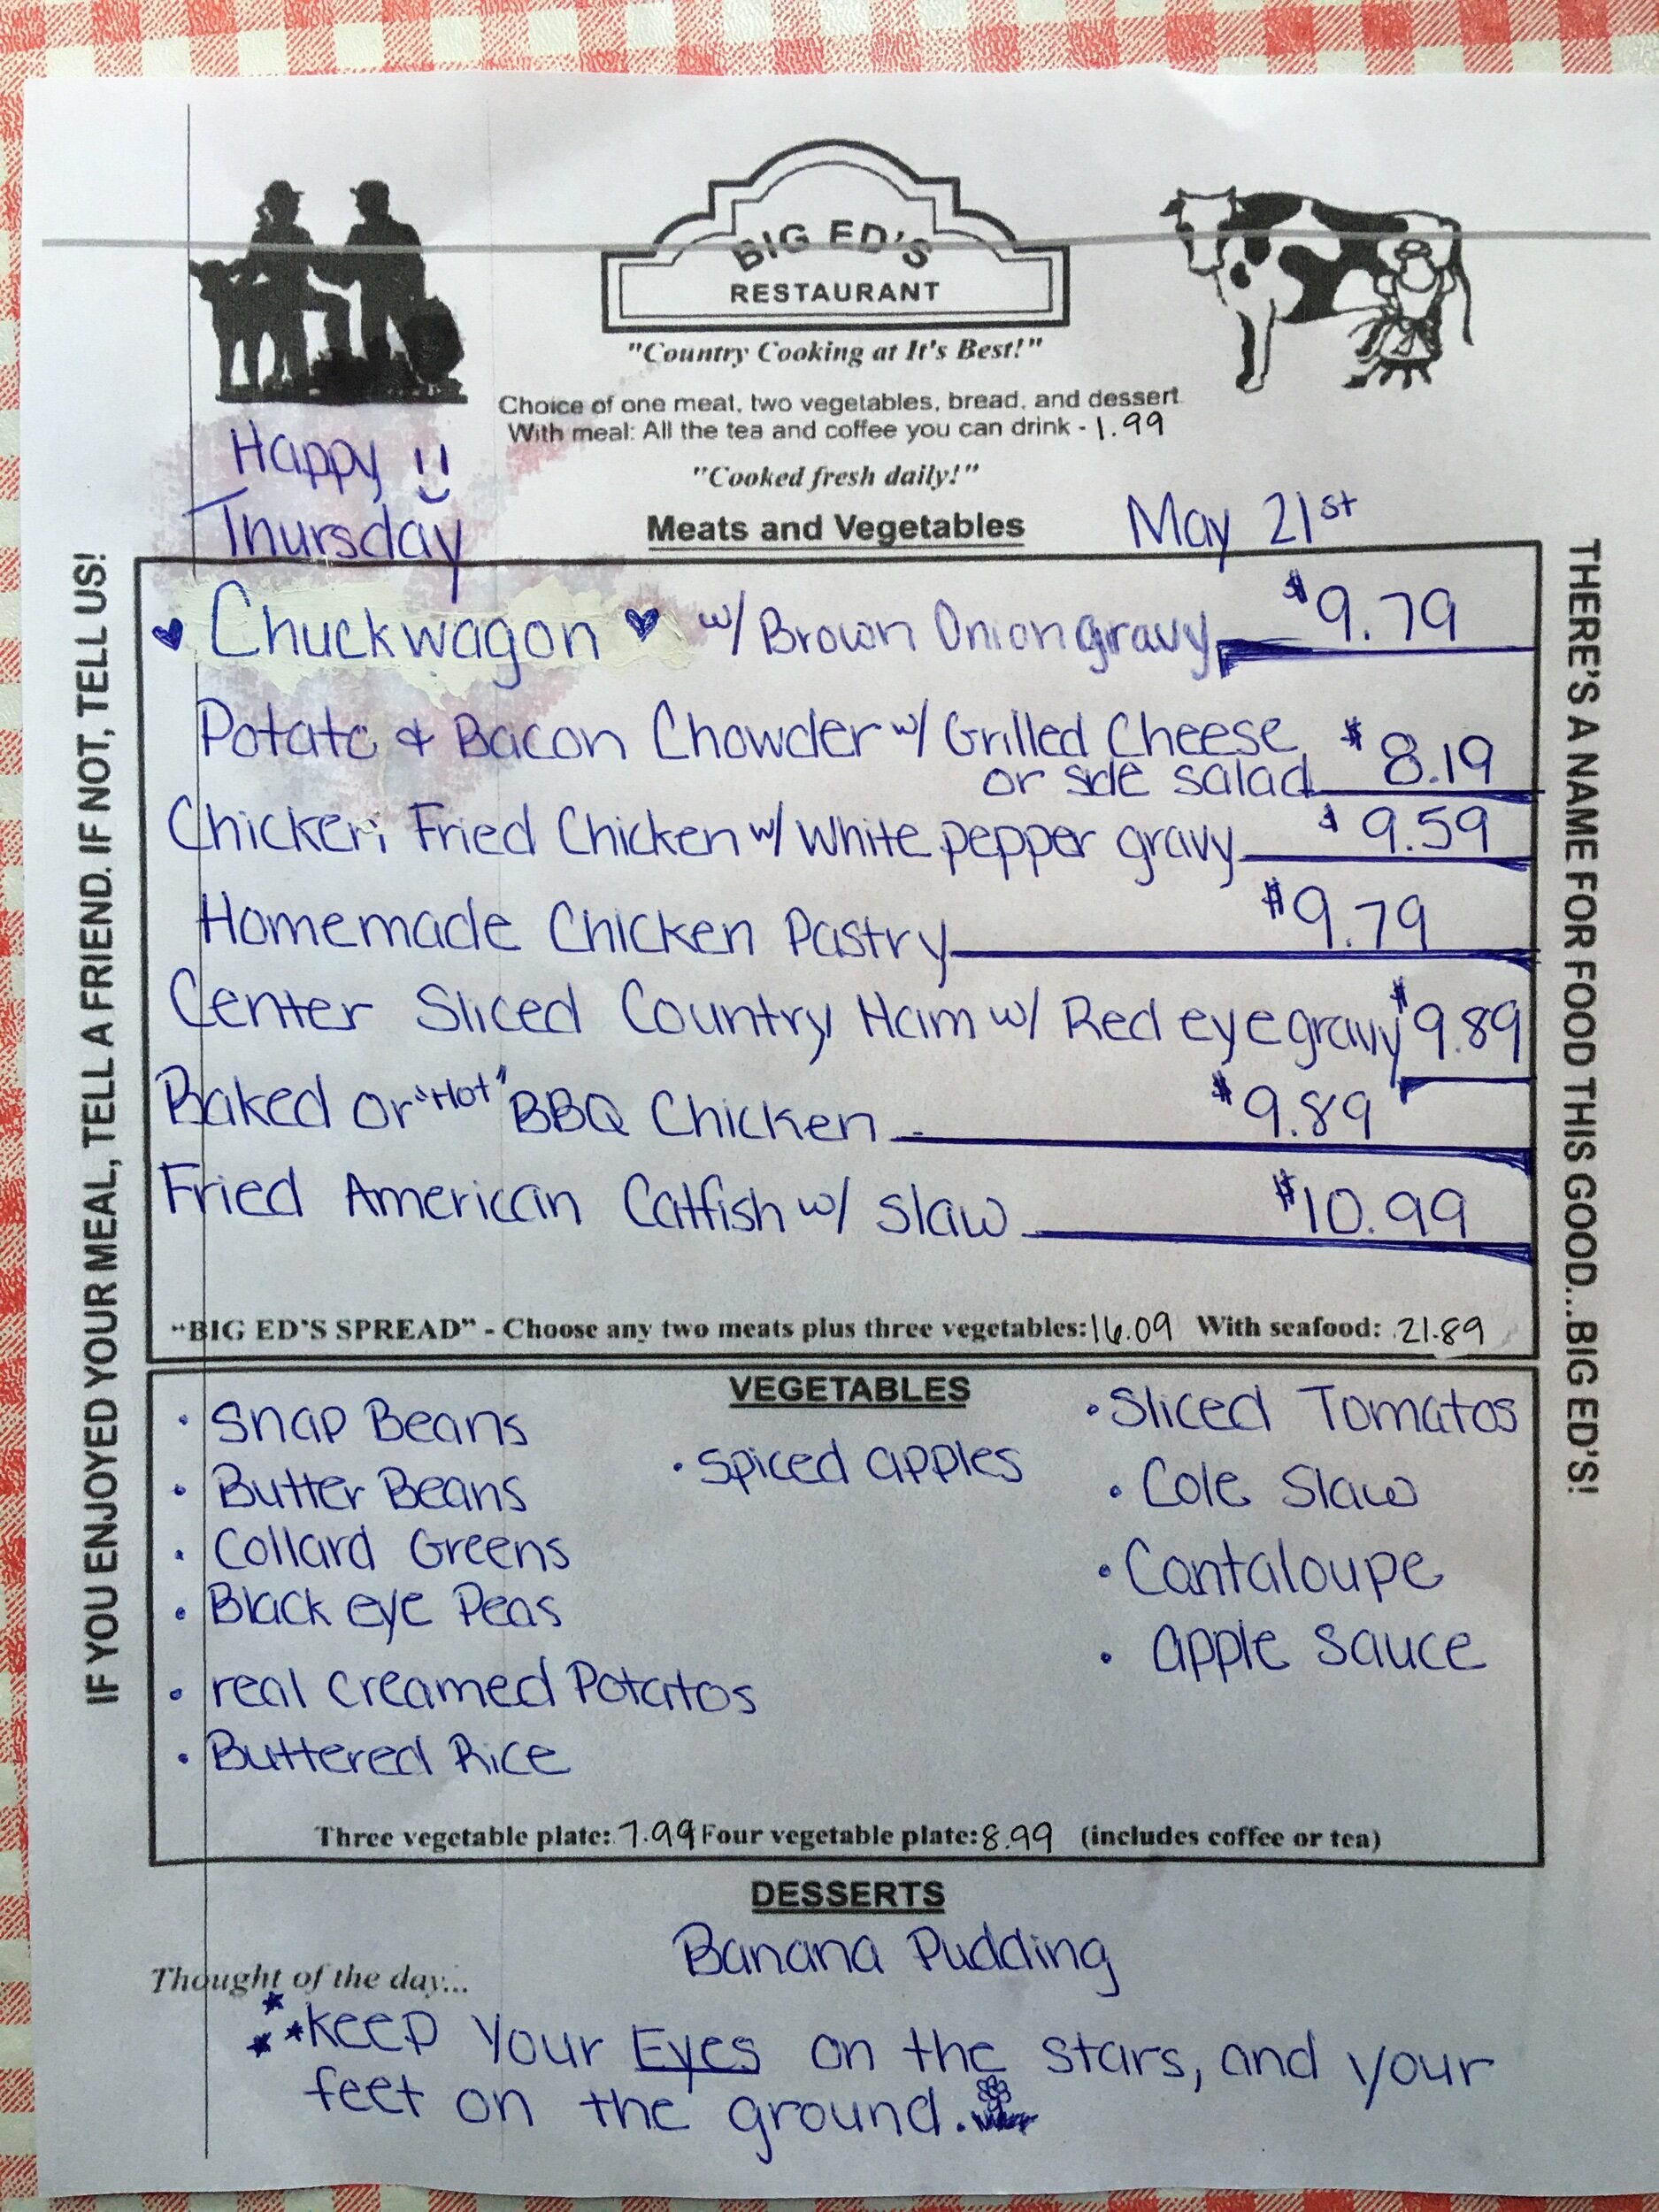 BIG ED'S
RESTAURANT
"Country Cooking at It's Best!"
Choice of one meat, two vegetables, bread, and dessert
With meal: All the tea and coffee you can drink - 1.99
"Cooked fresh daily!"
Happy
Thursday
Meats and Vegetables
May 21st
Chuckwagon w/ Brown Onion gravy $9.79
Potato & Bacon Chowder w/ Grilled Cheese
or side salad $8.19
Chicken Fried Chicken w/ White pepper gravy $9.59
Homemade Chicken Pastry $9.79
Center Sliced Country Ham w/ Red eye gravy $9.89
Baked or "Hot" BBQ Chicken $9.89
Fried American Catfish w/ slaw $10.99
"BIG ED'S SPREAD" - Choose any two meats plus three vegetables: 16.09 With seafood: 21.89
VEGETABLES
• Snap Beans
• Butter Beans
• Collard Greens
• Black eye Peas
• real creamed Potatos
• Buttered Rice
• spiced apples
• Sliced Tomatos
• Cole Slaw
• Cantaloupe
• apple sauce
Three vegetable plate: 7.99 Four vegetable plate: 8.99 (includes coffee or tea)
DESSERTS
Banana Pudding
Thought of the day...
keep your Eyes on the stars, and your
feet on the ground.
IF YOU ENJOYED YOUR MEAL, TELL A FRIEND. IF NOT, TELL US!
THERE'S A NAME FOR FOOD THIS GOOD...BIG ED'S!